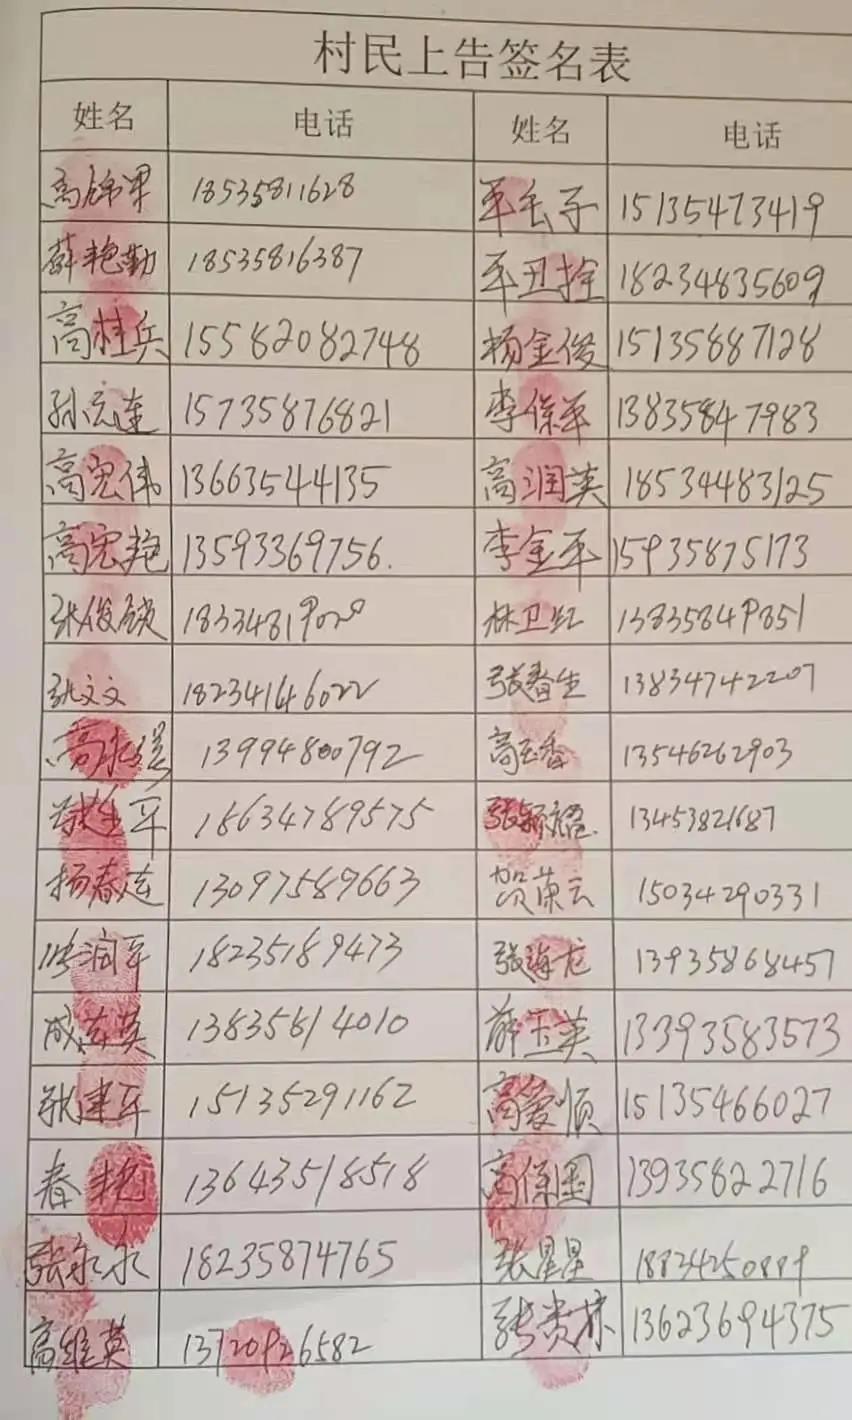 村民上告签名表
姓名 电话 姓名 电话
18535811628 平毛子 15135473419
薛艳勤 18535816387 平丑拴 18234835609
高桂兵 15582082748 杨金俊 15135887128
孙宏连 15735876821 李保平 13835847983
高宏伟 13663544135 高润英 18534483125
高宏艳 13593369756. 李金平 15935875173
张俊锁 林卫红 13835849851
张文文 18234146022 张春生 13834742207
13994800792 高玉香 13546262903
18634789575 13453821687
杨春莲 13097589663 贺荣云 15034290331
润平 18235189473 张海龙 13935868457
成莲英 13835814010 薛玉英 13393583573
张建平 15135291162 高爱顺 15135466027
春艳 13643518518 高保国 13935822716
张永永 18235874765 张星星
高维英 13720926582 张贵林 13623694375